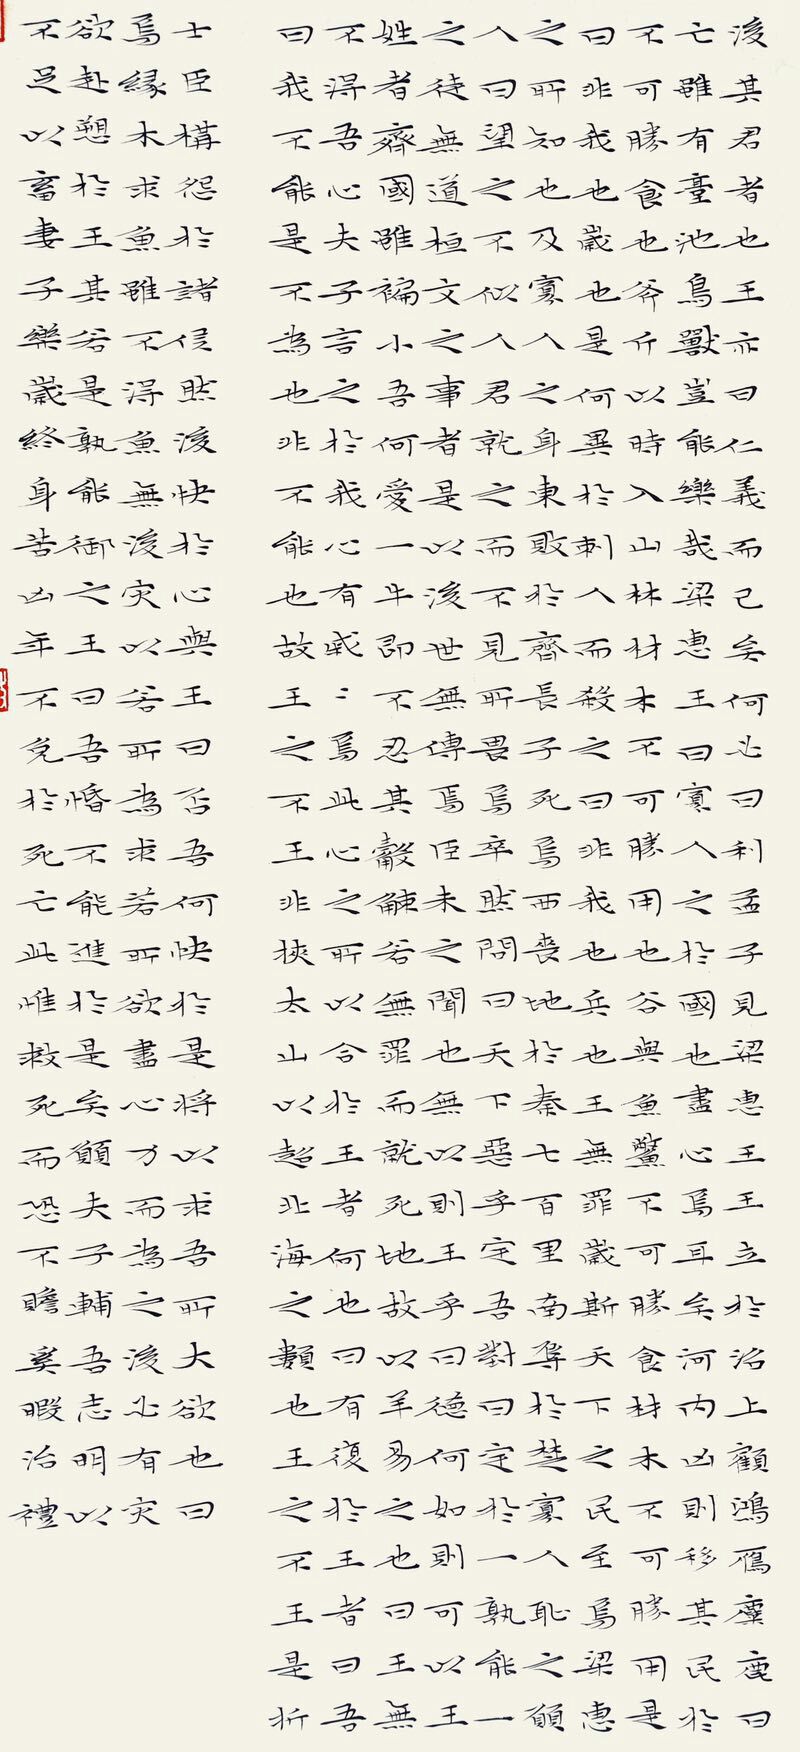 後其君者也王亦曰仁義而已矣何必曰利孟子見梁惠王王立於沼上顧鴻雁麋鹿曰
亡雖有臺池鳥獸豈能樂哉梁惠王曰寡人之於國也盡心焉耳矣河內凶則移其民於
不可勝食也斧斤以時入山林材木不可勝用也谷與魚鱉不可勝食材木不可勝用是
曰非我也歲也是何異於刺人而殺之曰非我也兵也王無罪歲斯天下之民至焉梁惠
之所知也及寡人之身東敗於齊長子死焉西喪地於秦七百里南辱於楚寡人恥之願
人曰望之不似人君就之而不見所畏焉卒然問曰天下惡乎定吾對曰定於一孰能一
之徒無道桓文之事者是以後世無傳焉臣未之聞也無以則王乎曰德何如則可以王
姓者齊國雖褊小吾何愛一牛即不忍其觳觫若無罪而就死地故以羊易之也曰王無
不得吾心夫子言之於我心有戚〻焉此心之所以合於王者何也曰有復於王者曰吾
曰我不能是不為也非不能也故王之不王非挾太山以超北海之類也王之不王是折
士臣構怨於諸侯然後快於心與王曰否吾何快於是將以求吾所大欲也曰
焉緣木求魚雖不得魚無後災以若所為求若所欲盡心力而為之後必有災
欲赴愬於王其若是孰能御之王曰吾惛不能進於是矣願夫子輔吾志明以
不足以畜妻子樂歲終身苦凶年不免於死亡此惟救死而恐不贍奚暇治禮